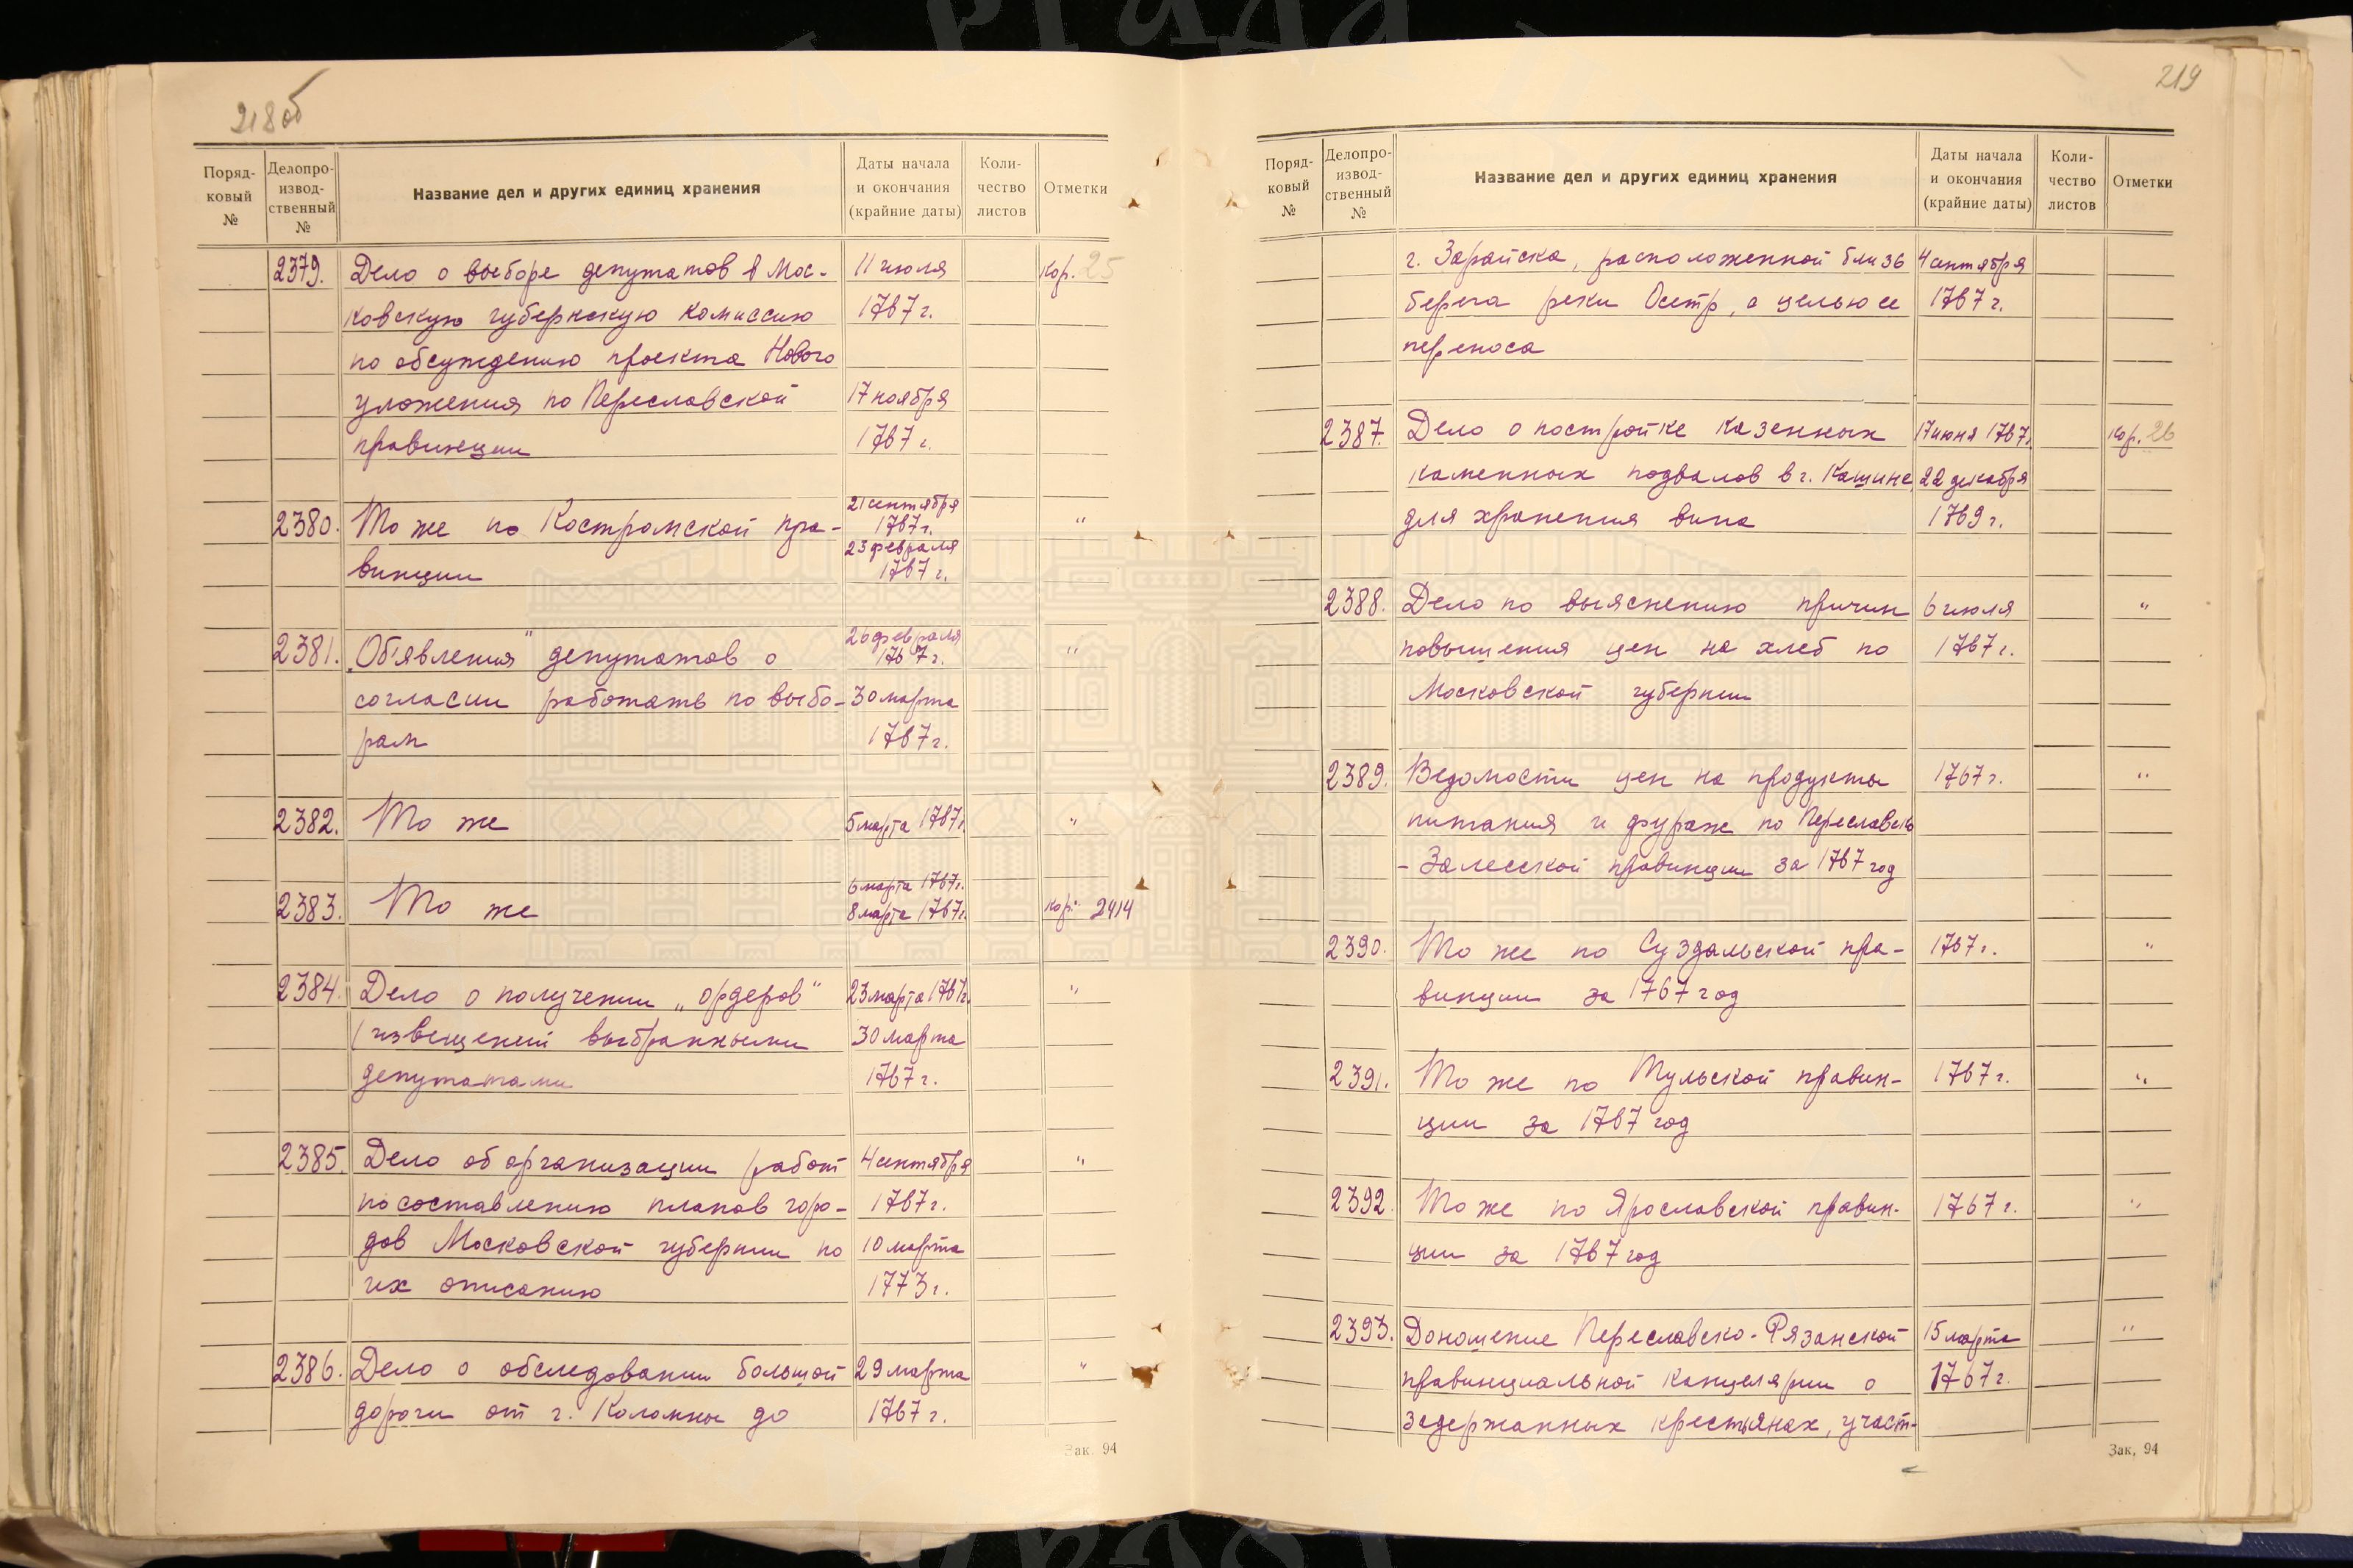 218об
Поряд-
ковый
№
Делопро-
извод-
ственный
№
Название дел и других единиц хранения
Даты начала
и окончания
(крайние даты)
Коли-
чество
листов
Отметки
2379. Дело о выборе депутатов в Мос- 11 июля кор. 25
ковскую губернскую комиссию 1767 г.
по обсуждению проекта Нового
уложения по Переславской 17 ноября
провинции 1767 г.
21 сентября
2380. То же по Костромской про- 1767 г. "
23 февраля
винции 1767 г.
20 февраля
2381. „Объявления" депутатов о 1767 г. "
согласии работать по выбо- 30 марта
рам 1767 г.
2382. То же 5 марта 1767 г. "
6 марта 1767 г.
2383. То же 8 марта 1767 г. кор. 2414
2384. Дело о получении „ордеров" 23 марта 1767 г. "
/извещений выбранными 30 марта
депутатами 1767 г.
2385. Дело об организации работ 4 сентября "
по составлению планов горо- 1767 г.
дов Московской губернии по 10 марта
их описанию 1773 г.
2386. Дело о обследовании большой 29 марта "
дороги от г. Коломны до 1767 г.
Зак. 94
219
Поряд-
ковый
№
Делопро-
извод-
ственный
№
Название дел и других единиц хранения
Даты начала
и окончания
(крайние даты)
Коли-
чество
листов
Отметки
г. Зарайска, расположенной близ 4 сентября
берега реки Осетр, с целью ее 1767 г.
переноса
2387. Дело о постройке казенных 17 июня 1767 г. кор. 26
каменных подвалов в г. Кашине 22 декабря
для хранения вина 1769 г.
2388. Дело по выяснению причин 6 июля "
повышения цен на хлеб по 1767 г.
Московской губернии
2389. Ведомости цен на продукты 1767 г. "
питания и фураж по Переславско
-Залесской провинции за 1767 год
2390. То же по Суздальской про- 1767 г. "
винции за 1767 год
2391. То же по Тульской провин- 1767 г. "
ции за 1767 год
2392. То же по Ярославской провин- 1767 г. "
ции за 1767 год
2393. Доношение Переславско-Рязанской 15 марта "
провинциальной канцелярии о 1767 г.
задержанных крестьянах, участ-
Зак, 94